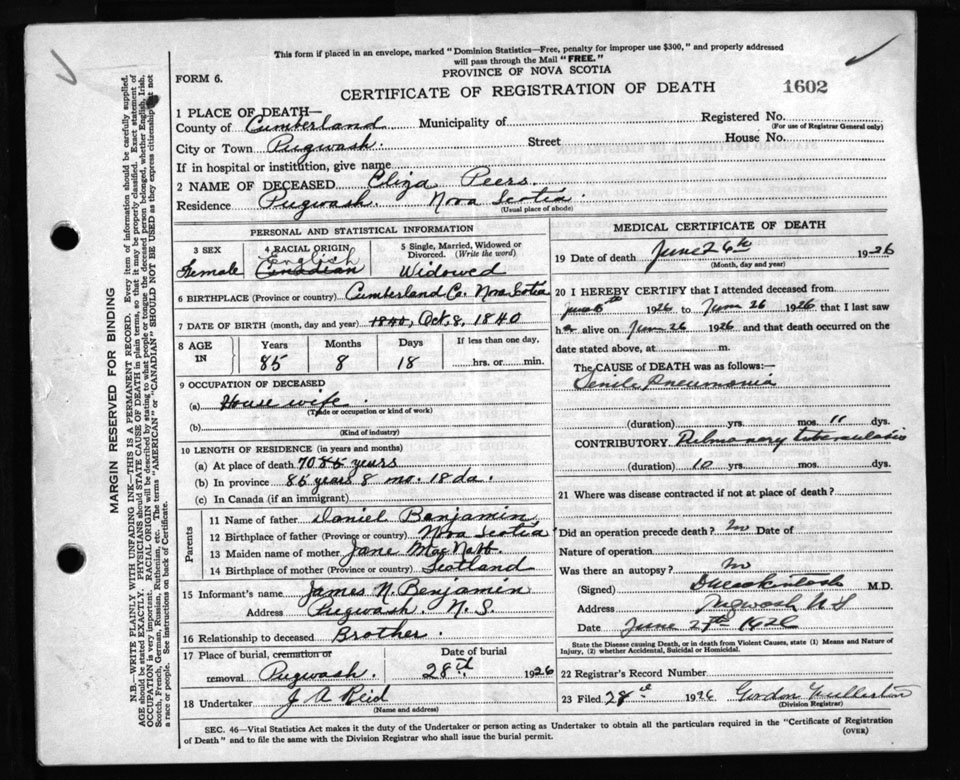 This form if placed in an envelope, marked "Dominion Statistics—Free, penalty for improper use $300," and properly addressed
will pass through the Mail "FREE."
PROVINCE OF NOVA SCOTIA
FORM 6.
CERTIFICATE OF REGISTRATION OF DEATH
1602
1 PLACE OF DEATH—
County of Cumberland Municipality of Registered No.
(For use of Registrar General only)
City or Town Pugwash. Street House No.
If in hospital or institution, give name
2 NAME OF DECEASED Eliza Peers
Residence Pugwash. Nova Scotia
(Usual place of abode)
PERSONAL AND STATISTICAL INFORMATION
3 SEX
Female
4 RACIAL ORIGIN
English
Canadian
5 Single, Married, Widowed or
Divorced. (Write the word)
Widowed
6 BIRTHPLACE (Province or country) Cumberland Co. Nova Scotia
7 DATE OF BIRTH (month, day and year) 1840, Oct, 8, 1840
8 AGE
IN
Years Months Days If less than one day,
85 8 18 hrs. or min.
9 OCCUPATION OF DECEASED
(a) House wife.
(Trade or occupation or kind of work)
(b)
(Kind of industry)
10 LENGTH OF RESIDENCE (in years and months)
(a) At place of death 70 85 years
(b) In province 85 years 8 mo. 18 da.
(c) In Canada (if an immigrant)
Parents
11 Name of father Daniel Benjamin
12 Birthplace of father (Province or country) Nova Scotia
13 Maiden name of mother Jane Mac Nabb
14 Birthplace of mother (Province or country) Scotland
15 Informant's name James N. Benjamin
Address Pugwash N. S.
16 Relationship to deceased Brother.
17 Place of burial, cremation or Date of burial
removal Pugwash. 28th 1926
18 Undertaker J A Reid
(Name and address)
MEDICAL CERTIFICATE OF DEATH
19 Date of death June 26th 1926
(Month, day and year)
20 I HEREBY CERTIFY that I attended deceased from
1926 to June 26 1926 that I last saw
her alive on June 26 1926 and that death occurred on the
date stated above, at m.
The CAUSE OF DEATH was as follows:—
Senile Pneumonia
(duration) yrs. mos. 11 dys.
CONTRIBUTORY Pulmonary tuberculosis
(duration) 10 yrs. mos. dys.
21 Where was disease contracted if not at place of death?
Did an operation precede death? no Date of
Nature of operation
Was there an autopsy? no
(Signed) M.D.
Address Pugwash NS
Date June 27th 1926
State the Disease causing Death, or in death from Violent Causes, state (1) Means and Nature of
Injury, (2) whether Accidental, Suicidal or Homicidal.
22 Registrar's Record Number
23 Filed 28th 1926 Gordon Fullerton
(Division Registrar)
SEC. 46—Vital Statistics Act makes it the duty of the Undertaker or person acting as Undertaker to obtain all the particulars required in the "Certificate of Registration
of Death" and to file the same with the Division Registrar who shall issue the burial permit.
(OVER)
MARGIN RESERVED FOR BINDING
N.B.—WRITE PLAINLY WITH UNFADING INK—THIS IS A PERMANENT RECORD. Every item of information should be carefully supplied.
AGE should be stated EXACTLY. PHYSICIANS should STATE CAUSE OF DEATH in plain terms, so that it may be properly classified. Exact statement of
OCCUPATION is very important. RACIAL ORIGIN will be described by stating to what people or tongue the deceased person belonged, whether English, Irish,
Scotch, French, German, Russian, Ruthenian, etc. The terms "AMERICAN" or "CANADIAN" SHOULD NOT BE USED as they express citizenship but not
a race or people. See instructions on back of Certificate.